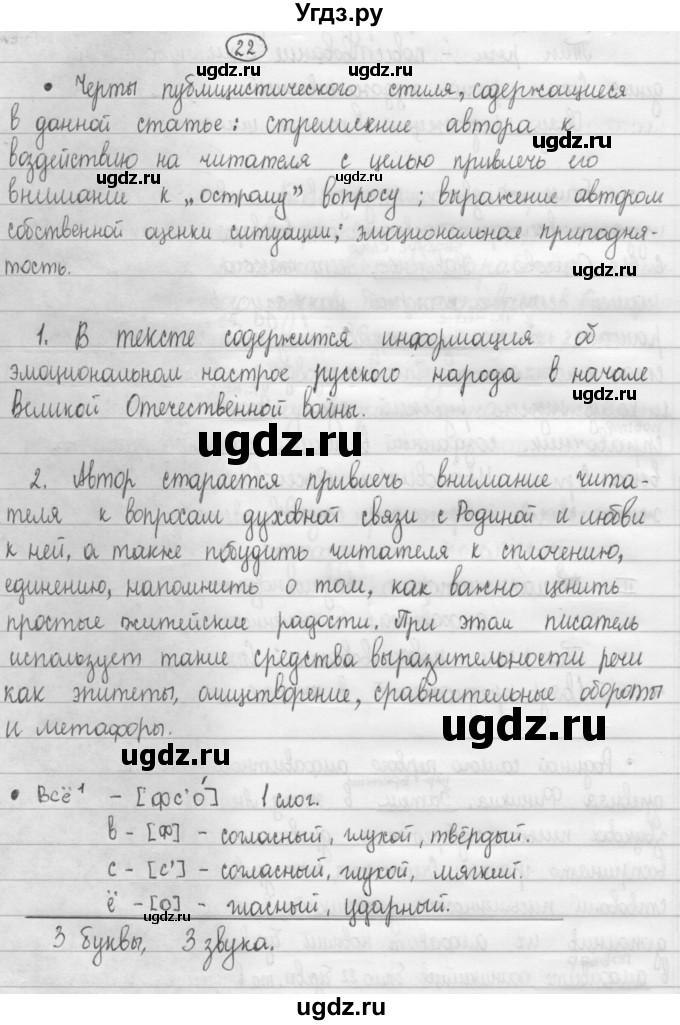 Угдз.ру
22
ugdz.ru ugdz.ru
• Черты публицистического стиля, содержащиеся
в данной статье: стремление автора к
ugdz.ru ugdz.ru
воздействию на читателя с целью привлечь его
ugdz.ru
внимание к „острому” вопросу; выражение автором
собственной оценки ситуации; эмоциональная приподня-
ugdz.ru ugdz.ru
тость.
ugdz.ru
1. В тексте содержится информация об
эмоциональном настрое русского народа в начале
Великой Отечественной войны.
ugdz.ru
ugdz.ru
2. Автор старается привлечь внимание чита-
теля к вопросам духовной связи с Родиной и любви
ugdz.ru
к ней, а также побудить читателя к сплочению,
единению, напомнить о том, как важно ценить
ugdz.ru
простые житейские радости. При этом писатель
использует такие средства выразительности речи
как эпитеты, олицетворение, сравнительные обороты
ugdz.ru
и метафоры.
ugdz.ru
• Всё¹ – [фс'о́] 1 слог.
ugdz.ru
в - [ф] - согласный, глухой, твёрдый.
с - [с'] - согласный, глухой, мягкий.
ugdz.ru
ё - [о] - гласный, ударный.
ugdz.ru
3 буквы, 3 звука.
ugdz.ru
ugdz.ru